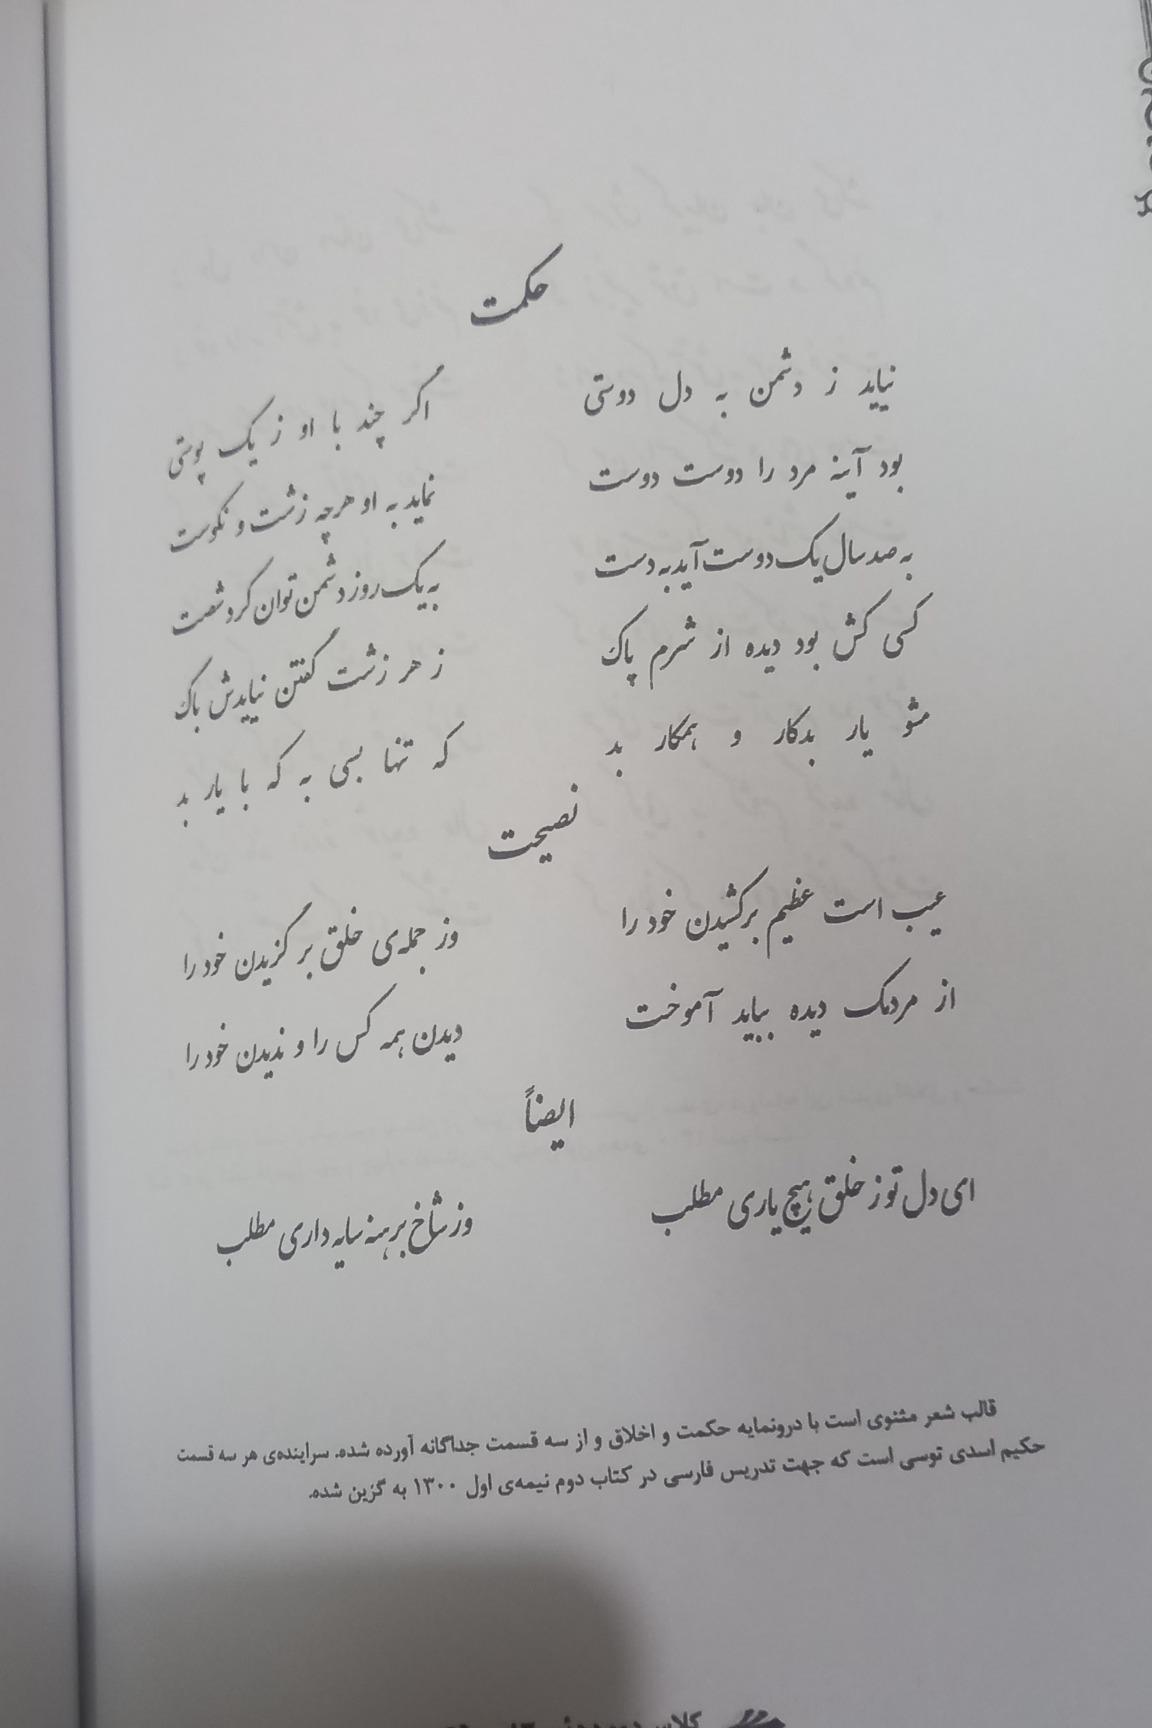 حکمت
نیاید ز دشمن به دل دوستی اگر چند با او ز یک پوستی
بود آینه مرد را دوست دوست نماید به او هرچه زشت و نکوست
به صد سال یک دوست آید به دست به یک روز دشمن توان کرد شصت
کسی کش بود دیده از شرم پاک ز هر زشت گفتن نیایدش باک
مشو یار بدکار و همکار بد که تنها بسی به که با یار بد
نصیحت
عیب است عظیم برکشیدن خود را وز جمله‌ی خلق بر گزیدن خود را
از مردمک دیده بباید آموخت دیدن همه کس را و ندیدن خود را
ایضاً
ای دل تو ز خلق هیچ یاری مطلب وز شاخ برهنه سایه داری مطلب
قالب شعر مثنوی است با درونمایه حکمت و اخلاق و از سه قسمت جداگانه آورده شده. سراینده‌ی هر سه قسمت
حکیم اسدی توسی است که جهت تدریس فارسی در کتاب دوم نیمه‌ی اول ۱۳۰۰ به گزین شده.